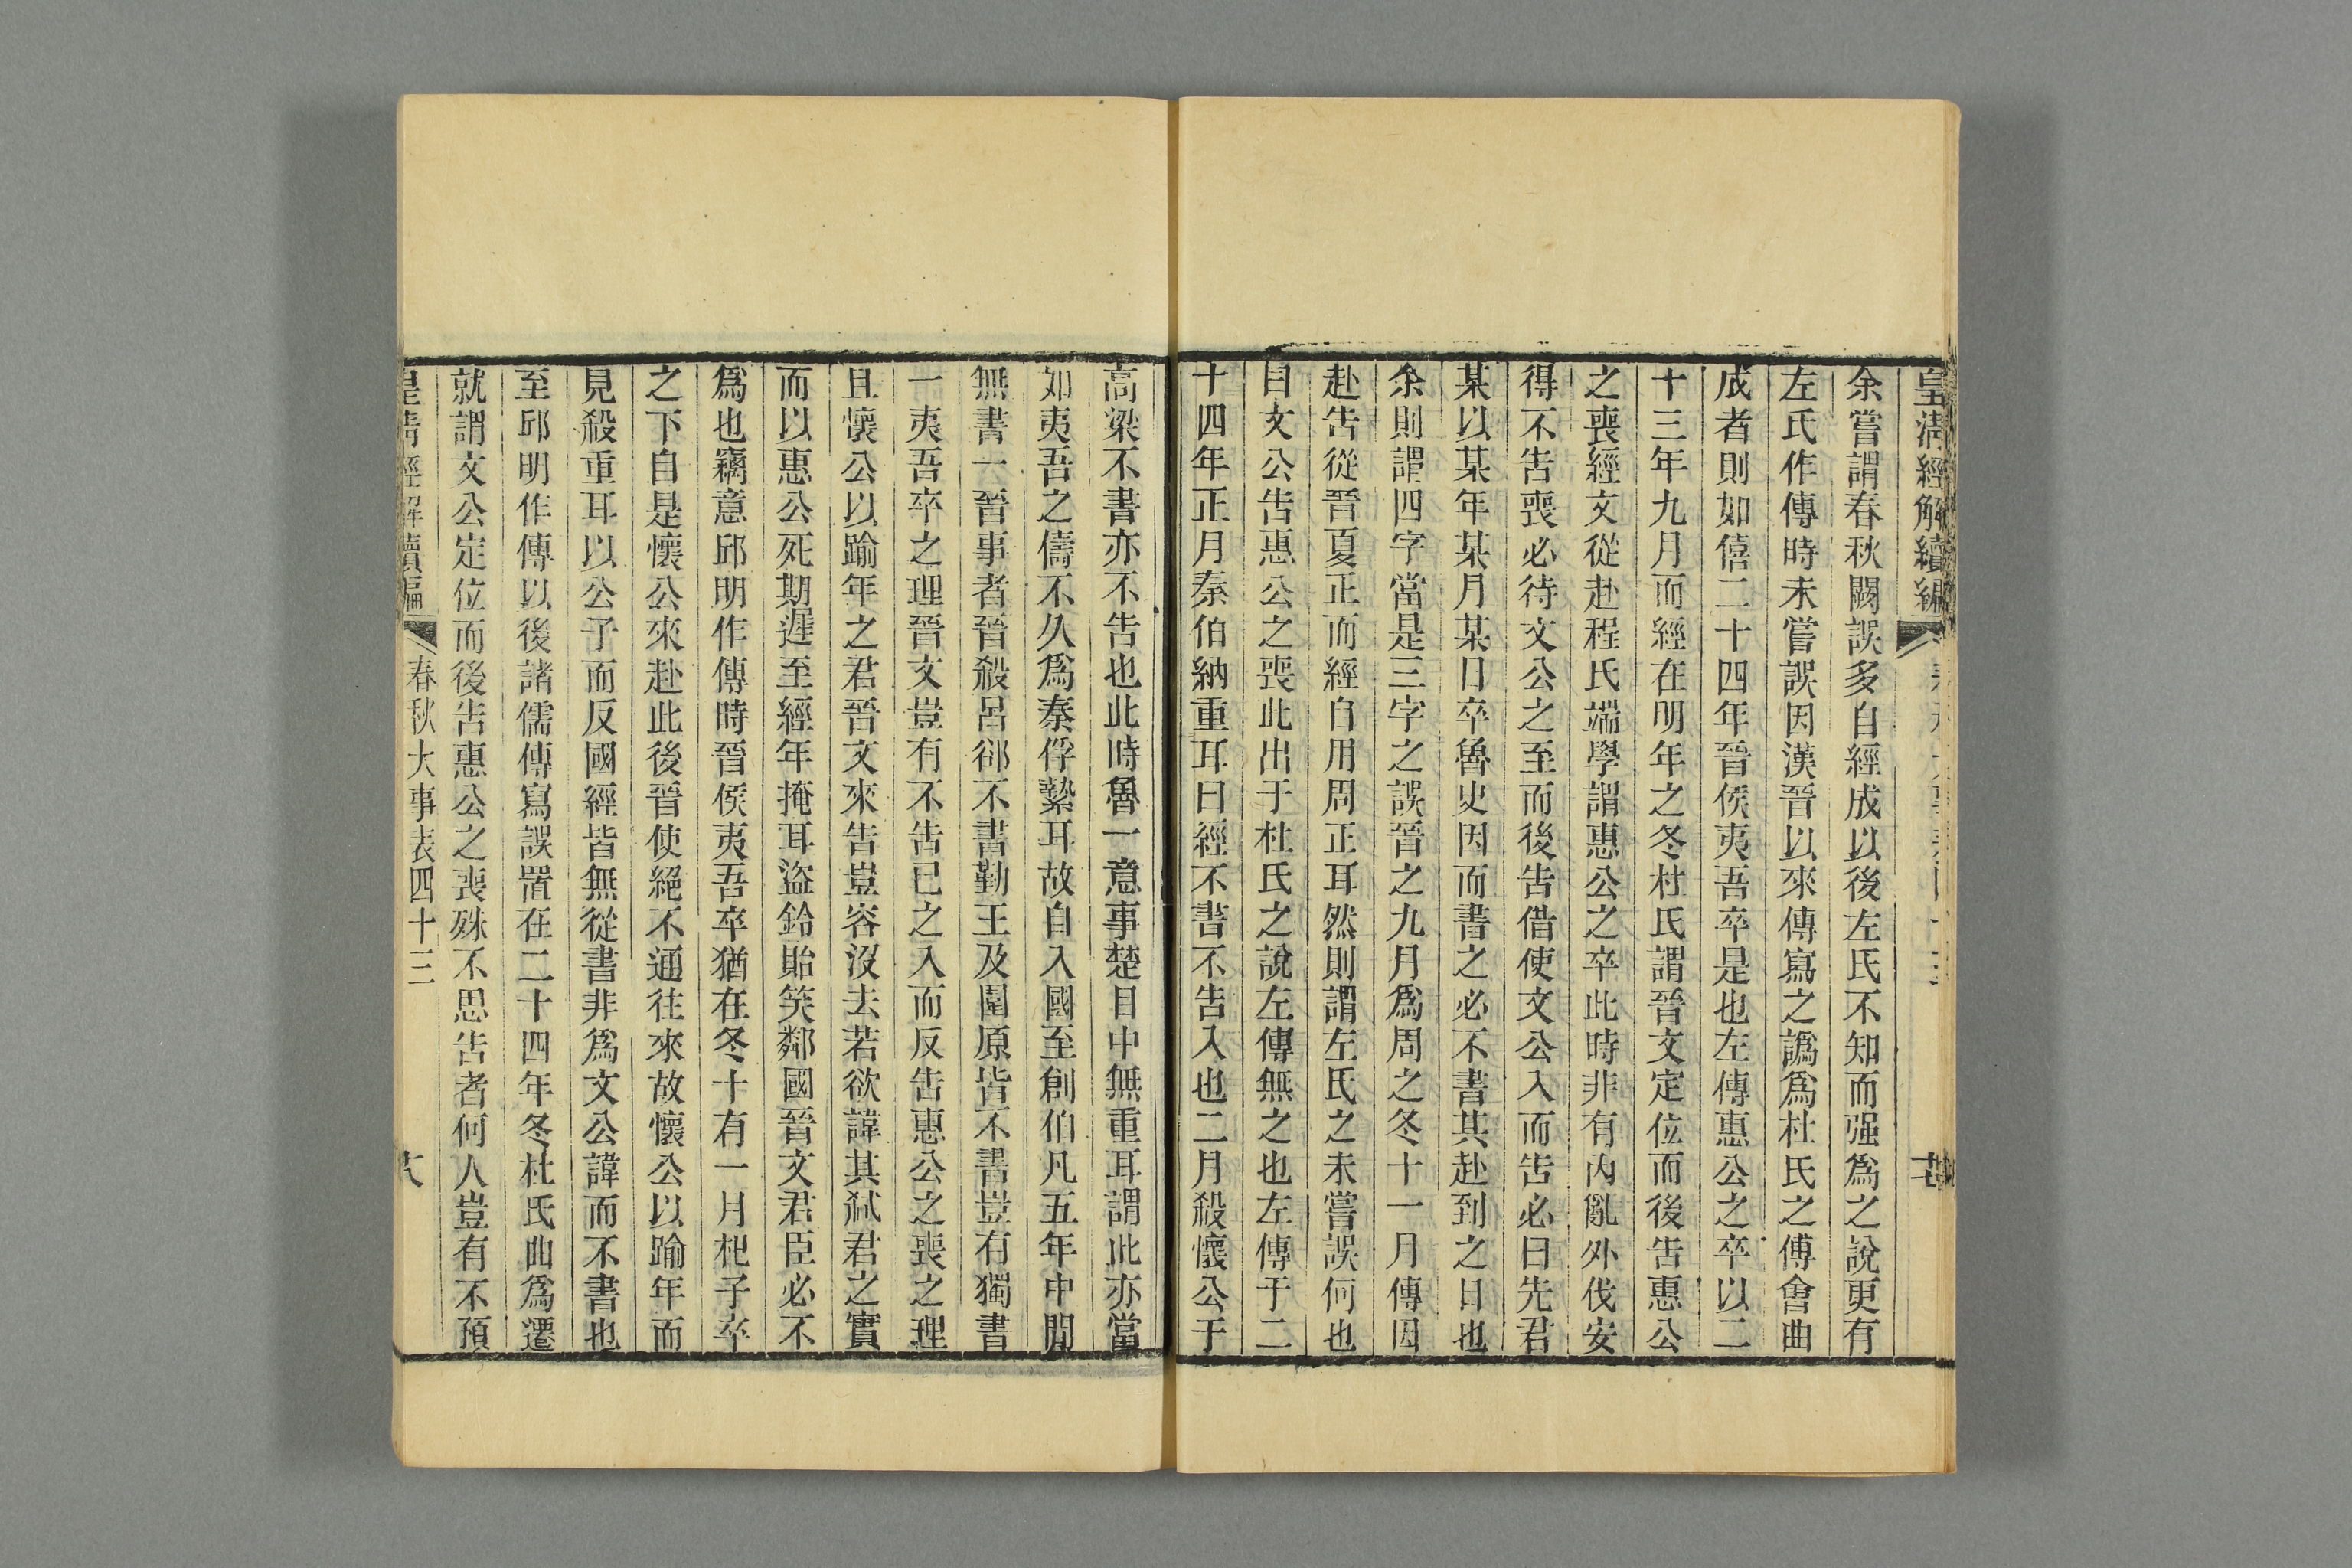 皇清經解續編
余嘗謂春秋闕誤多自經成以後左氏不知而强爲之說更有
左氏作傳時未嘗誤因漢晉以來傳寫之譌爲杜氏之傅會曲
成者則如僖二十四年晉侯夷吾卒是也左傳惠公之卒以二
十三年九月而經在明年之冬杜氏謂晉文定位而後告惠公
之喪經文從赴程氏端學謂惠公之卒此時非有內亂外伐安
得不告喪必待文公之至而後告借使文公入而告必曰先君
某以某年某月某日卒魯史因而書之必不書其赴到之日也
余則謂四字當是三字之誤晉之九月爲周之冬十一月傳因
赴告從晉夏正而經自用周正耳然則謂左氏之未嘗誤何也
曰文公告惠公之喪此出于杜氏之說左傳無之也左傳于二
十四年正月秦伯納重耳曰經不書不告入也二月殺懷公于
高梁不書亦不告也此時魯一意事楚目中無重耳謂此亦當
如夷吾之儔不久爲秦俘縶耳故自入國至創伯凡五年中閒
無書一晉事者晉殺呂郤不書勤王及圍原皆不書豈有獨書
一夷吾卒之理晉文豈有不告已之入而反告惠公之喪之理
且懷公以踰年之君晉文來告豈容沒去若欲諱其弑君之實
而以惠公死期遲至經年掩耳盜鈴貽笑鄰國晉文君臣必不
爲也竊意邱明作傳時晉侯夷吾卒猶在冬十有一月杞子卒
之下自是懷公來赴此後晉使絕不通往來故懷公以踰年而
見殺重耳以公子而反國經皆無從書非爲文公諱而不書也
至邱明作傳以後諸儒傳寫誤置在二十四年冬杜氏曲爲遷
就謂文公定位而後告惠公之喪殊不思告者何人豈有不預
皇清經解續編
春秋大事表四十三
大